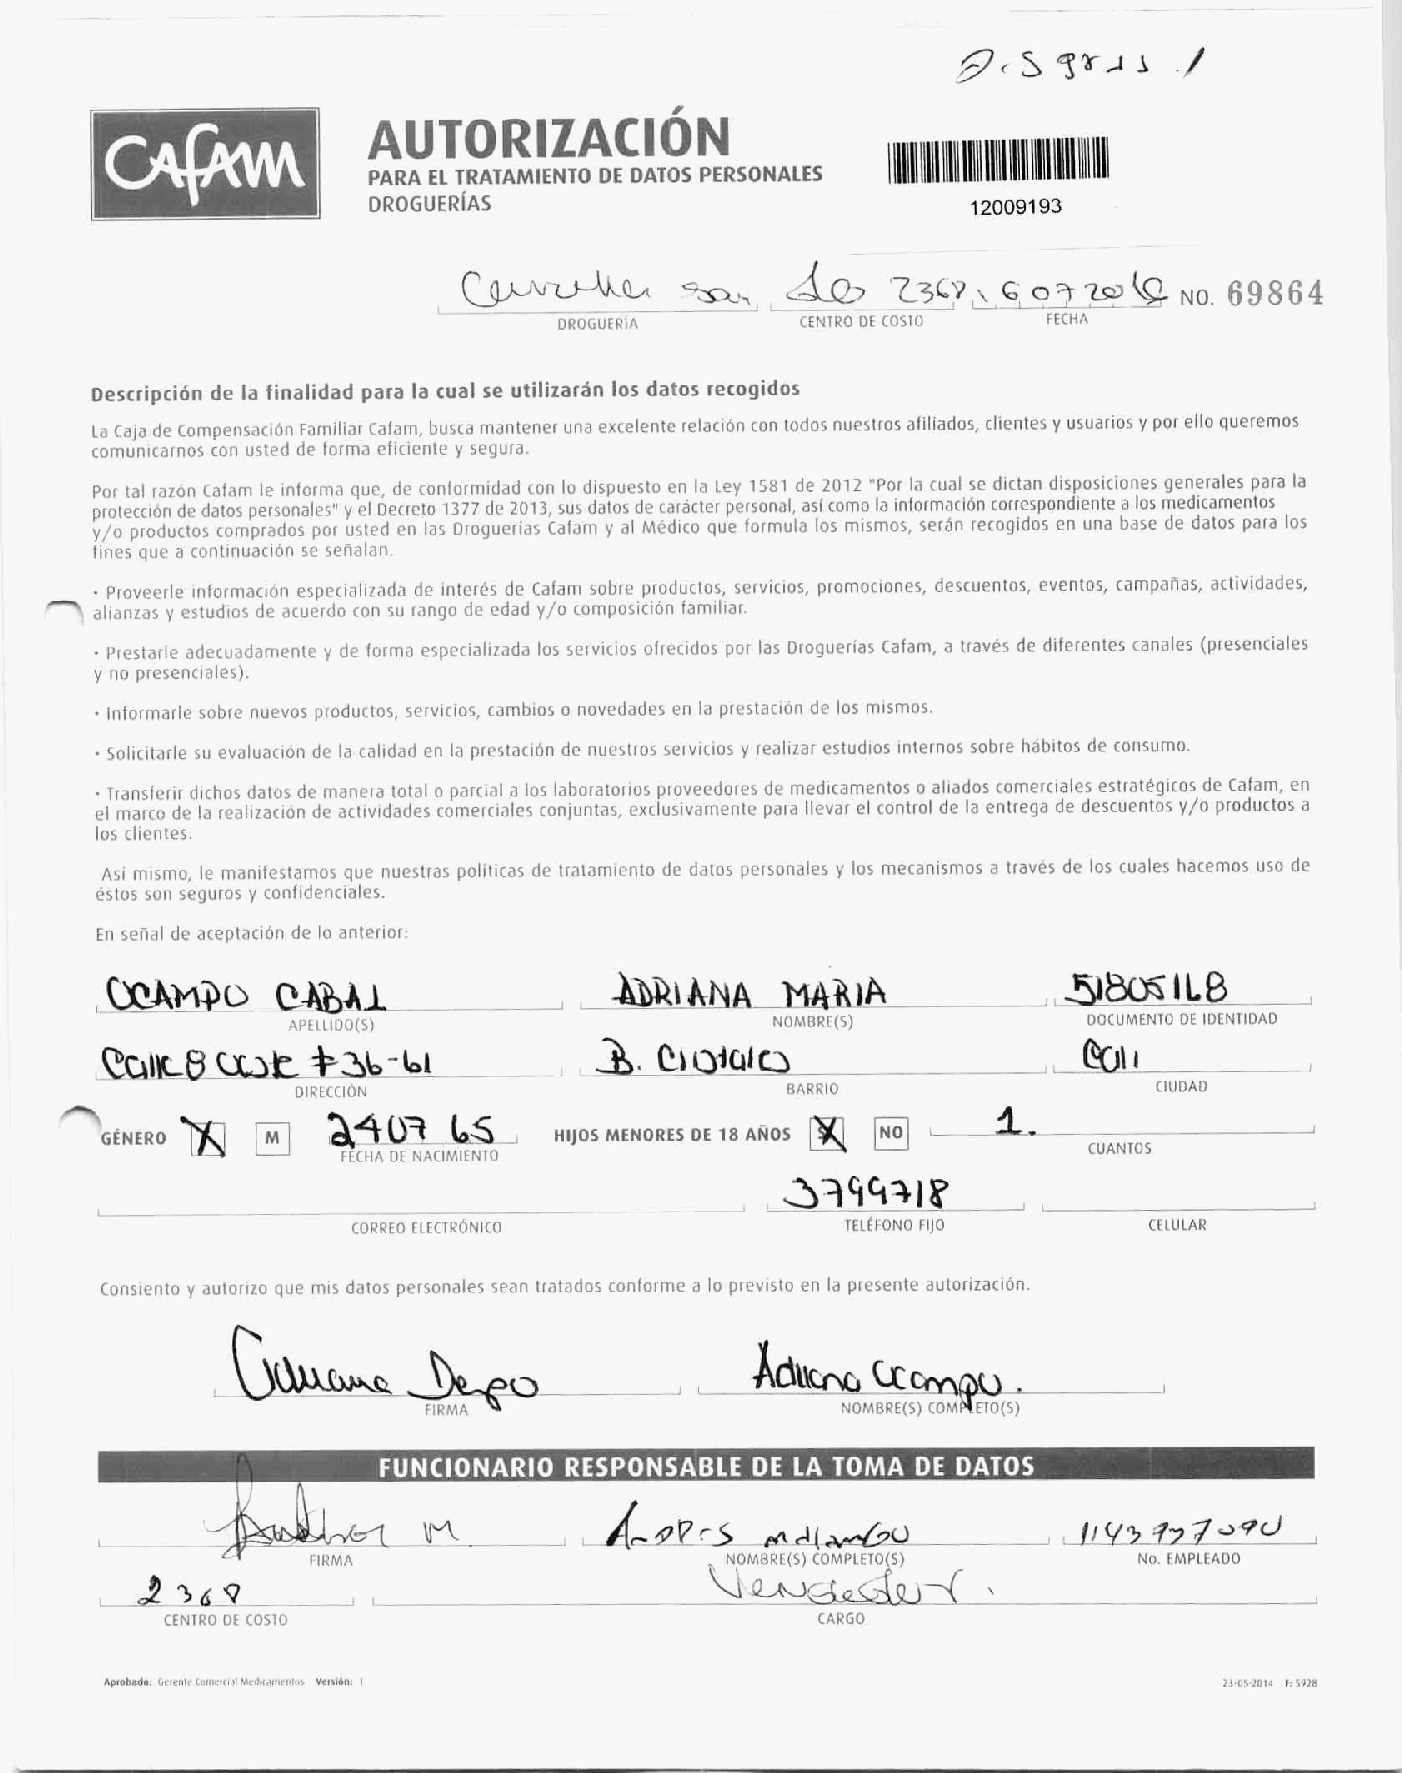 CAFAM
AUTORIZACIÓN
PARA EL TRATAMIENTO DE DATOS PERSONALES
DROGUERÍAS
12009193
2368 6 07 2016 NO. 69864
DROGUERÍA CENTRO DE COSTO FECHA
Descripción de la finalidad para la cual se utilizarán los datos recogidos
La Caja de Compensación Familiar Cafam, busca mantener una excelente relación con todos nuestros afiliados, clientes y usuarios y por ello queremos
comunicarnos con usted de forma eficiente y segura.
Por tal razón Cafam le informa que, de conformidad con lo dispuesto en la Ley 1581 de 2012 "Por la cual se dictan disposiciones generales para la
protección de datos personales" y el Decreto 1377 de 2013, sus datos de carácter personal, así como la información correspondiente a los medicamentos
y/o productos comprados por usted en las Droguerías Cafam y al Médico que formula los mismos, serán recogidos en una base de datos para los
fines que a continuación se señalan.
· Proveerle información especializada de interés de Cafam sobre productos, servicios, promociones, descuentos, eventos, campañas, actividades,
alianzas y estudios de acuerdo con su rango de edad y/o composición familiar.
· Prestarle adecuadamente y de forma especializada los servicios ofrecidos por las Droguerías Cafam, a través de diferentes canales (presenciales
y no presenciales).
· Informarle sobre nuevos productos, servicios, cambios o novedades en la prestación de los mismos.
· Solicitarle su evaluación de la calidad en la prestación de nuestros servicios y realizar estudios internos sobre hábitos de consumo.
· Transferir dichos datos de manera total o parcial a los laboratorios proveedores de medicamentos o aliados comerciales estratégicos de Cafam, en
el marco de la realización de actividades comerciales conjuntas, exclusivamente para llevar el control de la entrega de descuentos y/o productos a
los clientes.
Así mismo, le manifestamos que nuestras políticas de tratamiento de datos personales y los mecanismos a través de los cuales hacemos uso de
éstos son seguros y confidenciales.
En señal de aceptación de lo anterior:
OCAMPO CABAL ADRIANA MARIA 51805168
APELLIDO(S) NOMBRE(S) DOCUMENTO DE IDENTIDAD
Calle 8 Oeste # 36-61 B. Cali
DIRECCIÓN BARRIO CIUDAD
GÉNERO X M 240765 HIJOS MENORES DE 18 AÑOS X NO 1.
FECHA DE NACIMIENTO CUANTOS
3799718
CORREO ELECTRÓNICO TELÉFONO FIJO CELULAR
Consiento y autorizo que mis datos personales sean tratados conforme a lo previsto en la presente autorización.
Adriana Ocampo.
FIRMA NOMBRE(S) COMPLETO(S)
FUNCIONARIO RESPONSABLE DE LA TOMA DE DATOS
FIRMA NOMBRE(S) COMPLETO(S) No. EMPLEADO
2368 Vendedor.
CENTRO DE COSTO CARGO
Aprobado: Gerente Comercial Medicamentos Versión: 1 23-05-2014 F: 5928